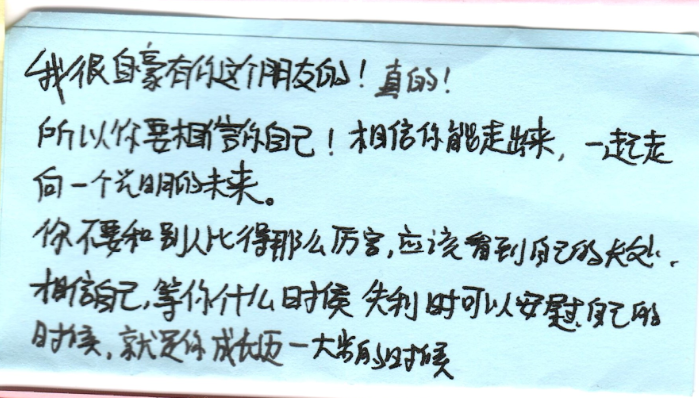 我很自豪有你这个朋友的！真的！
所以你要相信你自己！相信你能走出来，一起走
向一个光明的未来。
你不要和别人比得那么厉害，应该看到自己的长处.
相信自己，等你什么时候失利时可以安慰自己的
时候，就是你成长迈一大步的时候